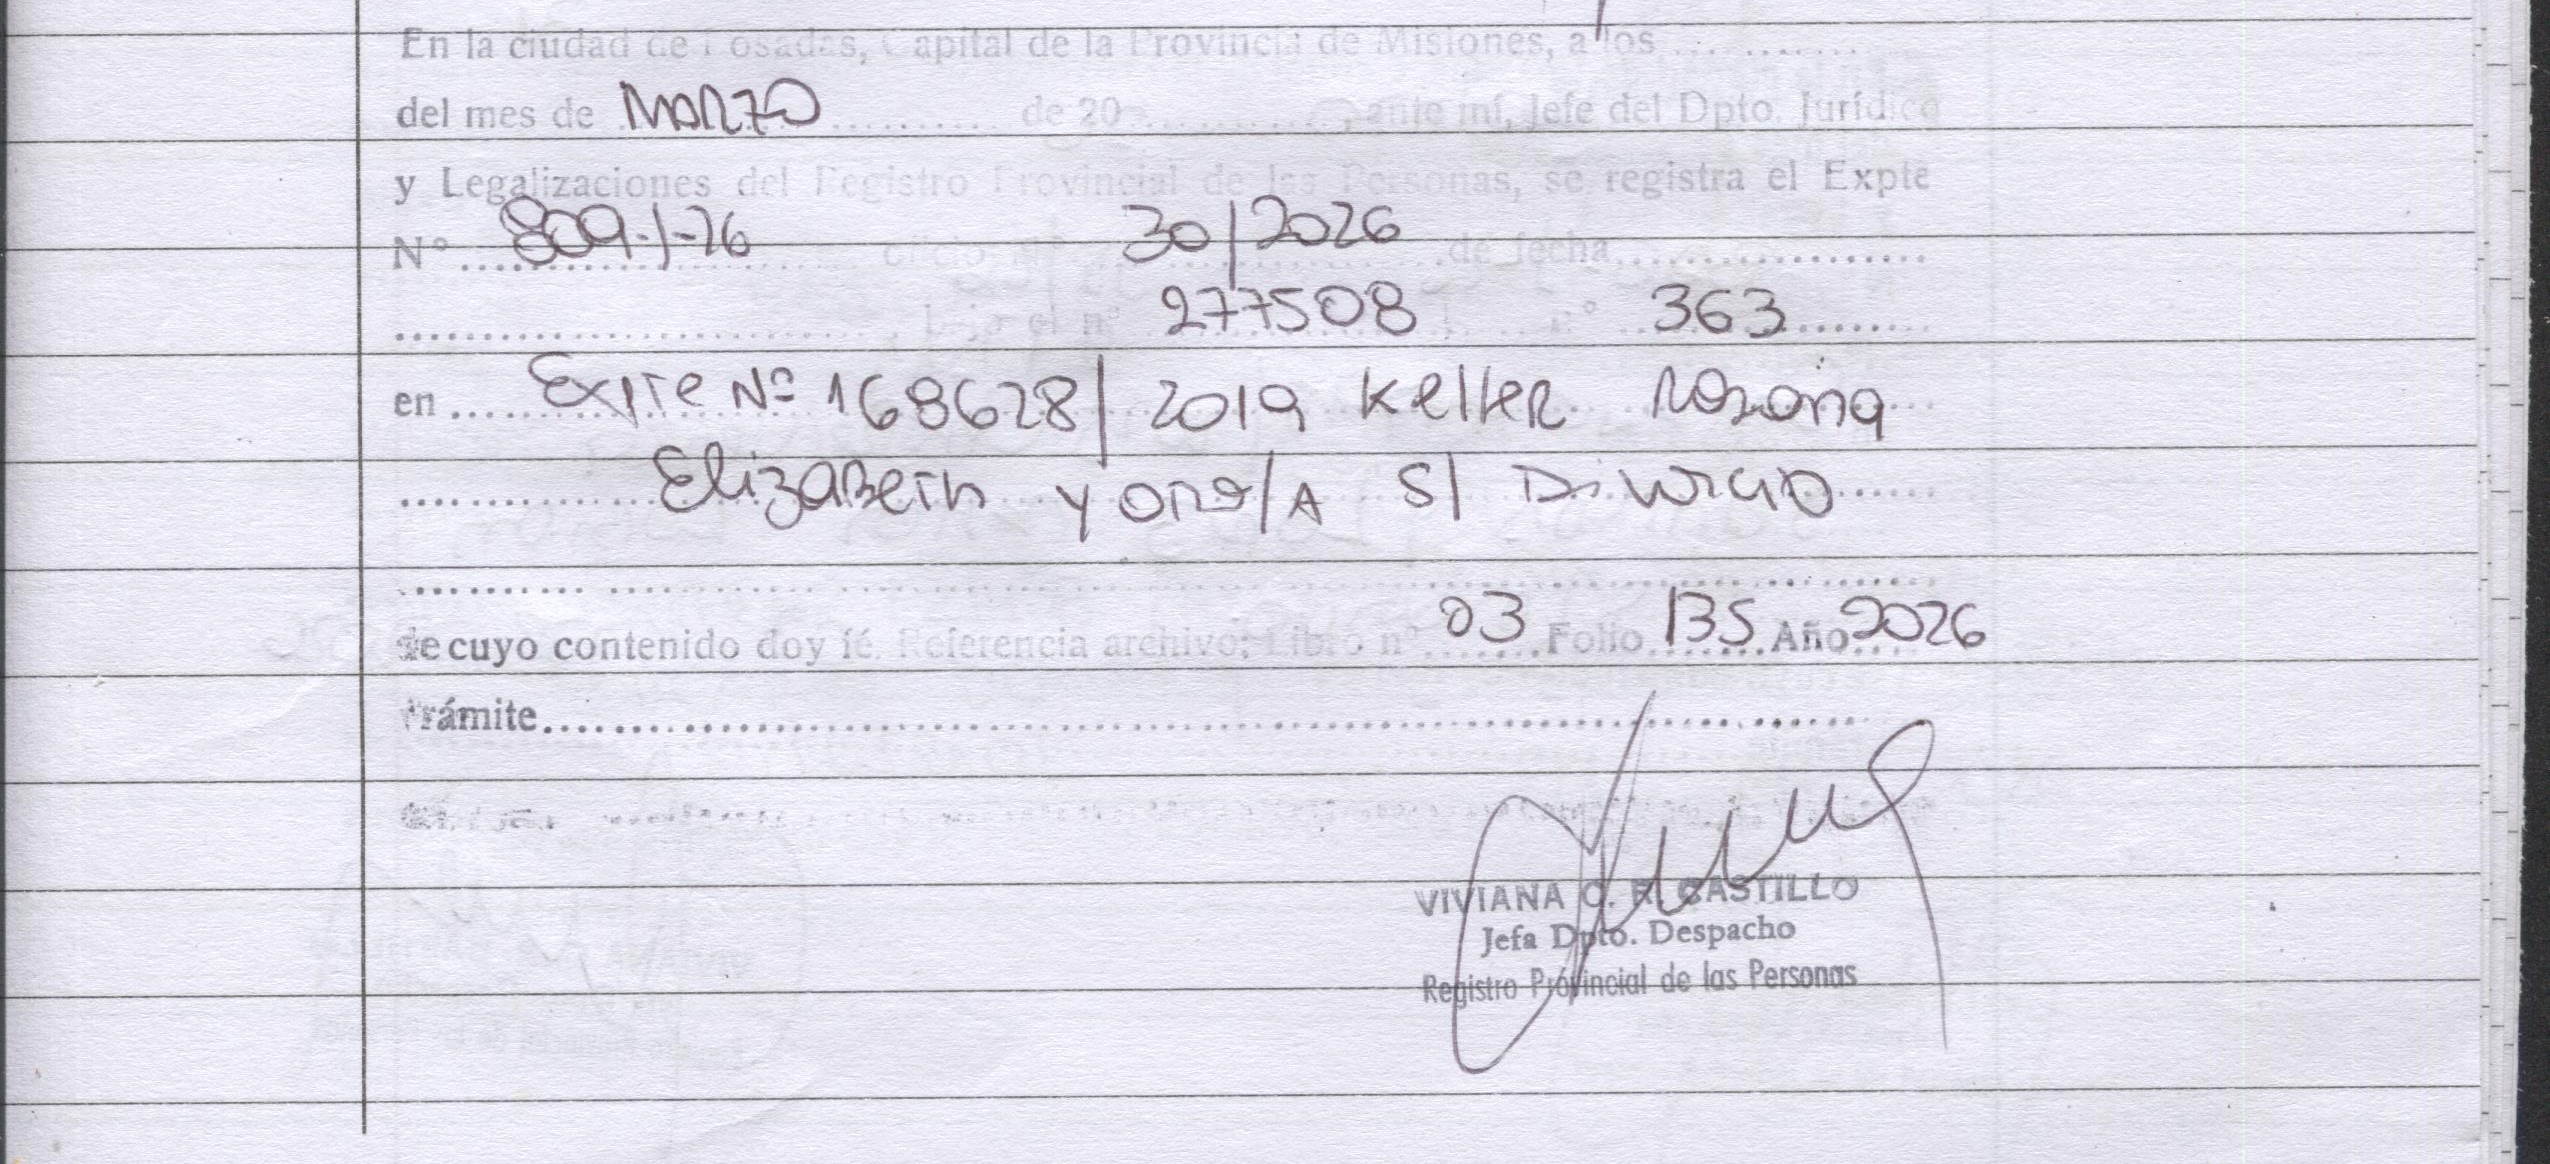 En la ciudad de Posadas, Capital de la Provincia de Misiones, a los ............
del mes de MARZO ............ de 20 ............, ante mí, Jefe del Dpto. Jurídico
y Legalizaciones del Registro Provincial de las Personas, se registra el Expte
N° 809-J-26 oficio N° 30/2026 de fecha ............
............, bajo el n° 277508 n° 363
en Expte Nº 168628/2019 Keller Rosana
Elizabeth y otro/A S/ Divorcio
de cuyo contenido doy fé. Referencia archivo: Libro nº 03 Folio 135 Año 2026
trámite............
VIVIANA C. R. CASTILLO
Jefa Dpto. Despacho
Registro Provincial de las Personas